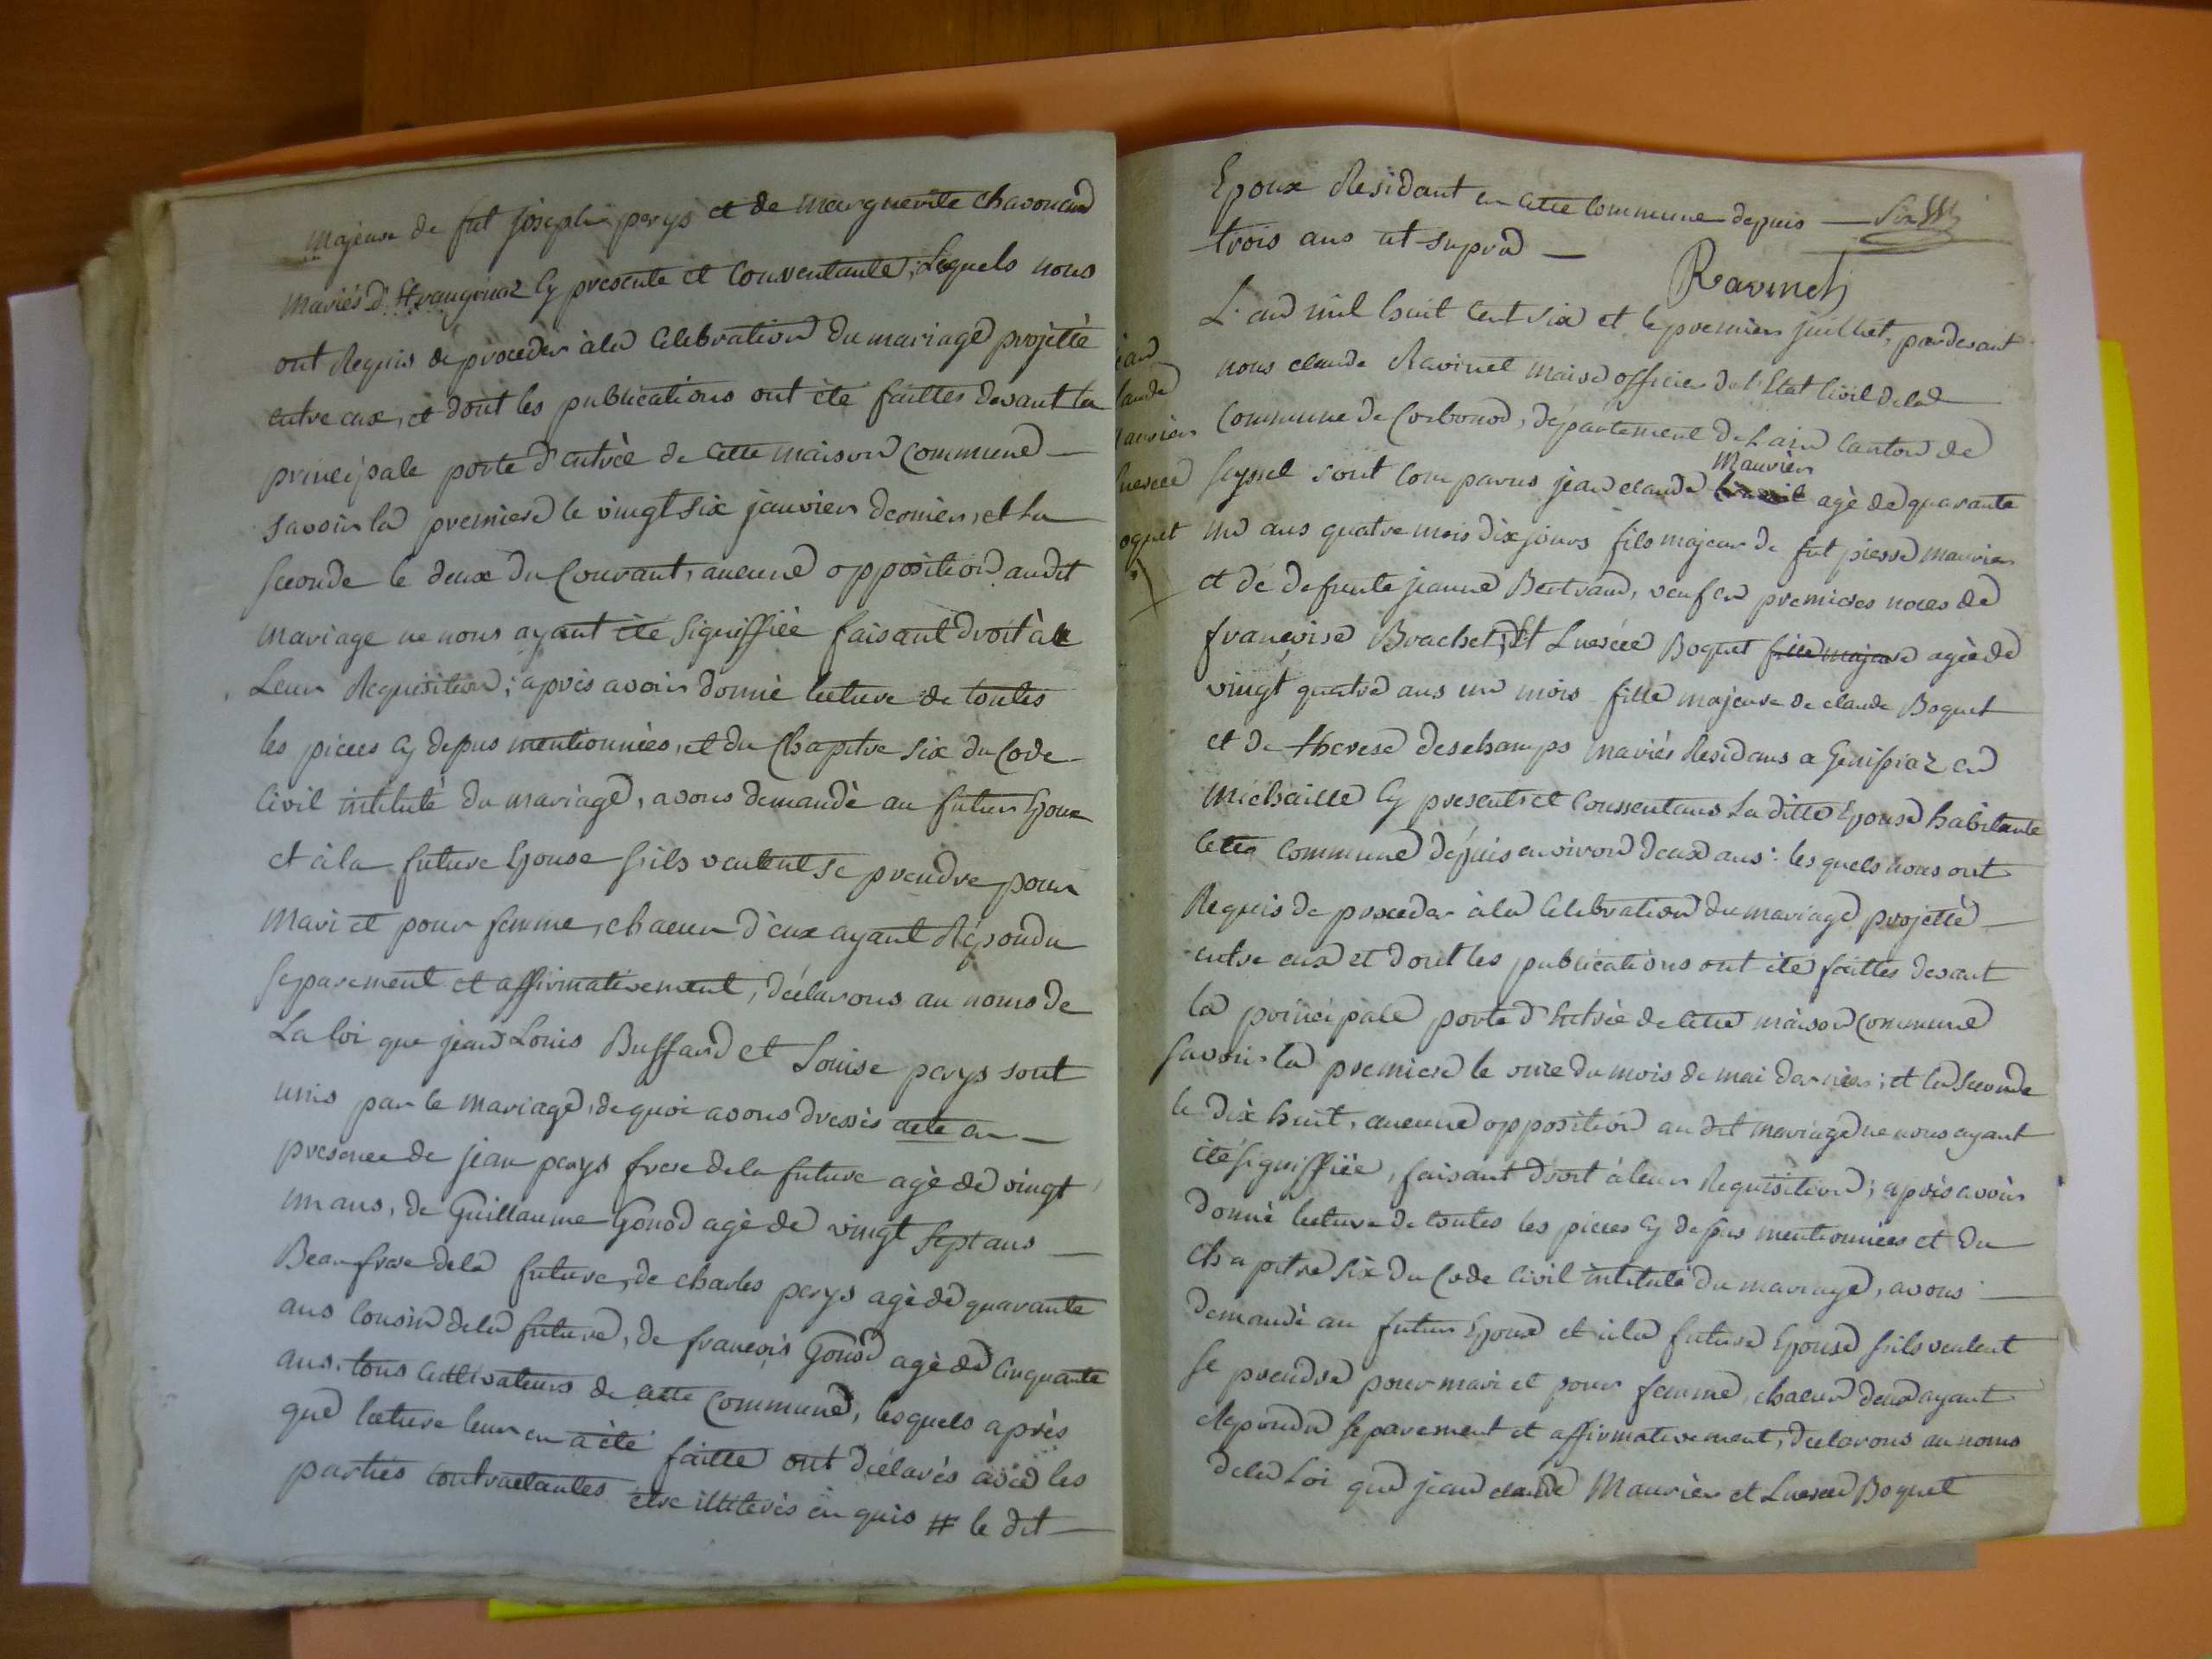 Majeure de fut joseph perys et de marguerite chavonend
mariés d'Etranginaz Cy presente et Consentante; Lesquels nous
ont Requis de proceder à la Celebration du mariage projetté
entre eux, et dont les publications ont été faittes devant la
principale porte d'entrée de cette maison Commune —
savoir la premiere le vingt six janvier dernier, et La
seconde le deux du Courant, aucune opposition audit
mariage ne nous ayant été signiffiée faisant droit à
Leur Requisition; après avoir donné lecture de toutes
les pieces cy dessus mentionnées, et du Chapitre six du Code
Civil intitulé du mariage, avons demandé au futur Epoux
et à la future Epouse s'ils veulent se prendre pour
mari et pour femme, chacun d'eux ayant Répondu
separement et affirmativement, déclarons au noms de
La loi que jean Louis Buffard et Louise perys sont
unis par le mariage, de quoi avons dressés acte en —
presence de jean perys frere de la future agé de vingt
un ans, de Guillaume Gonod agé de vingt sept ans —
Beaufrere de la future, de charles perys agé de quarante
ans cousin de la future, de françois Gonod agé de Cinquante
ans, tous cultivateurs de cette Commune, lesquels après
que lecture leur en a été faitte ont déclarés avec les
parties contractantes être illiterés en quis # le dit —
Epoux Residant en cette Commune depuis —
trois ans ut supra —
Ravinet
L'an mil huit cent six et le premier juilliet, pardevant
nous claude Ravinet maire officier de l'Etat Civil de la
Commune de Corbonod, département de l'ain Canton de
Seyssel sont Comparus jean claude Maurier agé de quarante
un ans quatre mois dix jours fils majeur de fut pierre maurier
et de defunte jeanne Bertrand, veuf en premieres noces de
françoise Brachet; Et Lucrece Boquet fille majeure agée de
vingt quatre ans un mois fille majeure de claude Boquet
et de therese deschamps mariés Residans a Genissiaz en
michaille Cy presents et Consentans La ditte Epouse habitante
cette Commune depuis environ deux ans: lesquels nous ont
Requis de proceder à la Celebration du mariage projetté —
entre eux et dont les publications ont été faittes devant
la principale porte d'Entrée de cette maison Commune
savoir la premiere le onze du mois de mai dernier; et la seconde
le dix huit, aucune opposition au dit mariage ne nous ayant
été signiffiée, faisant droit à leur Requisition; après avoir
donné lecture de toutes les pieces cy dessus mentionnées et du
Chapitre six du Code Civil intitulé du mariage, avons —
demandé au futur Epoux et à la future Epouse s'ils veulent
se prendre pour mari et pour femme, chacun deux ayant
Repondu separement et affirmativement, declarons au noms
de la Loi que jean claude Maurier et Lucrece Boquet
ean
laude
aurier
ucrece
oquet